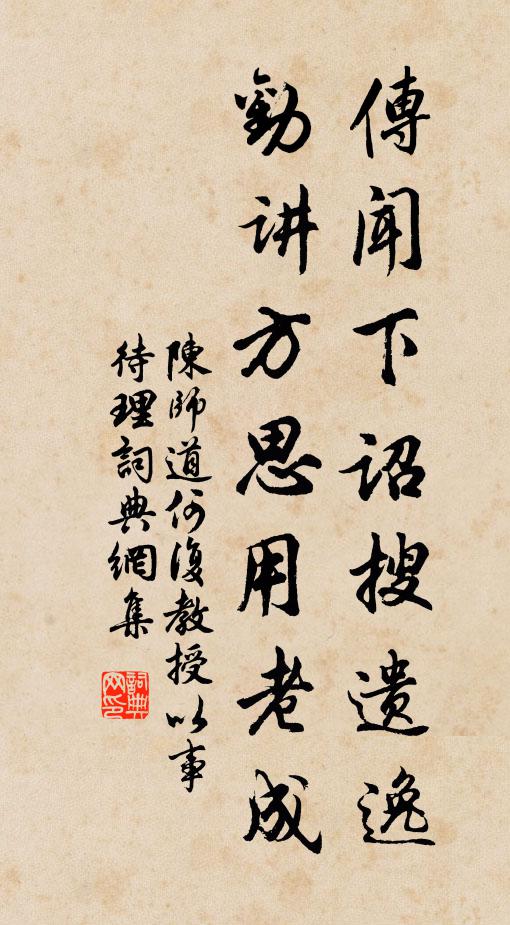 傳聞下詔搜遺逸
勸讲方思用老成
陳師道何復教授以事
待理詞典網集
詞典
网印